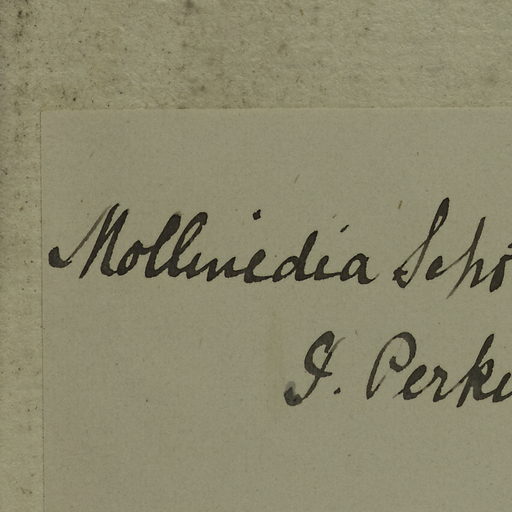 Mollinedia Schö
J. Perki